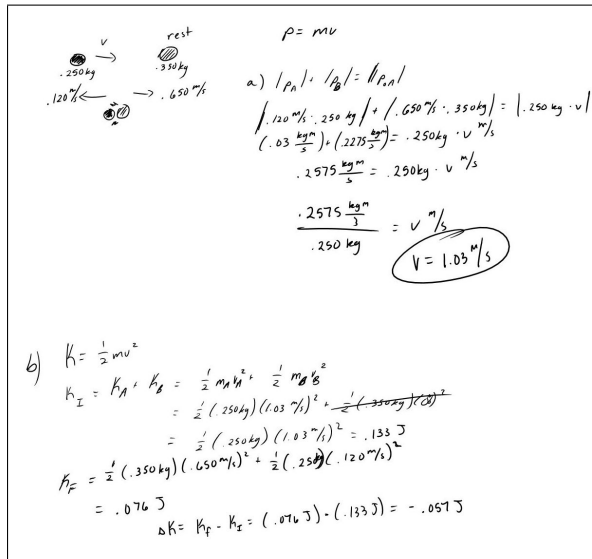 v → rest
.250kg .350kg
.120 m/s ← → .650 m/s
p = mv
a) |p_A| + |p_B| = |p_oA|
|.120 m/s · .250 kg| + |.650 m/s · .350kg| = |.250kg · v|
(.03 kgm/s) + (.2275 kgm/s) = .250kg · v m/s
.2575 kgm/s = .250kg · v m/s
.2575 kgm/s / .250 kg = v m/s
V = 1.03 m/s
b) K = 1/2 mv²
K_I = K_A + K_B = 1/2 m_A v_A² + 1/2 m_B v_B²
= 1/2 (.250kg)(1.03 m/s)² + 1/2 (.350kg)(0)²
= 1/2 (.250kg)(1.03 m/s)² = .133 J
K_F = 1/2 (.350kg)(.650 m/s)² + 1/2 (.250kg)(.120 m/s)²
= .076 J
ΔK = K_f - K_I = (.076 J) - (.133 J) = -.057 J